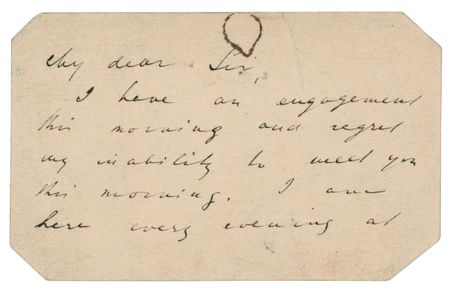 My dear Sir,
I have an engagement
this morning and regret
my inability to meet you
this morning. I am
here every evening at